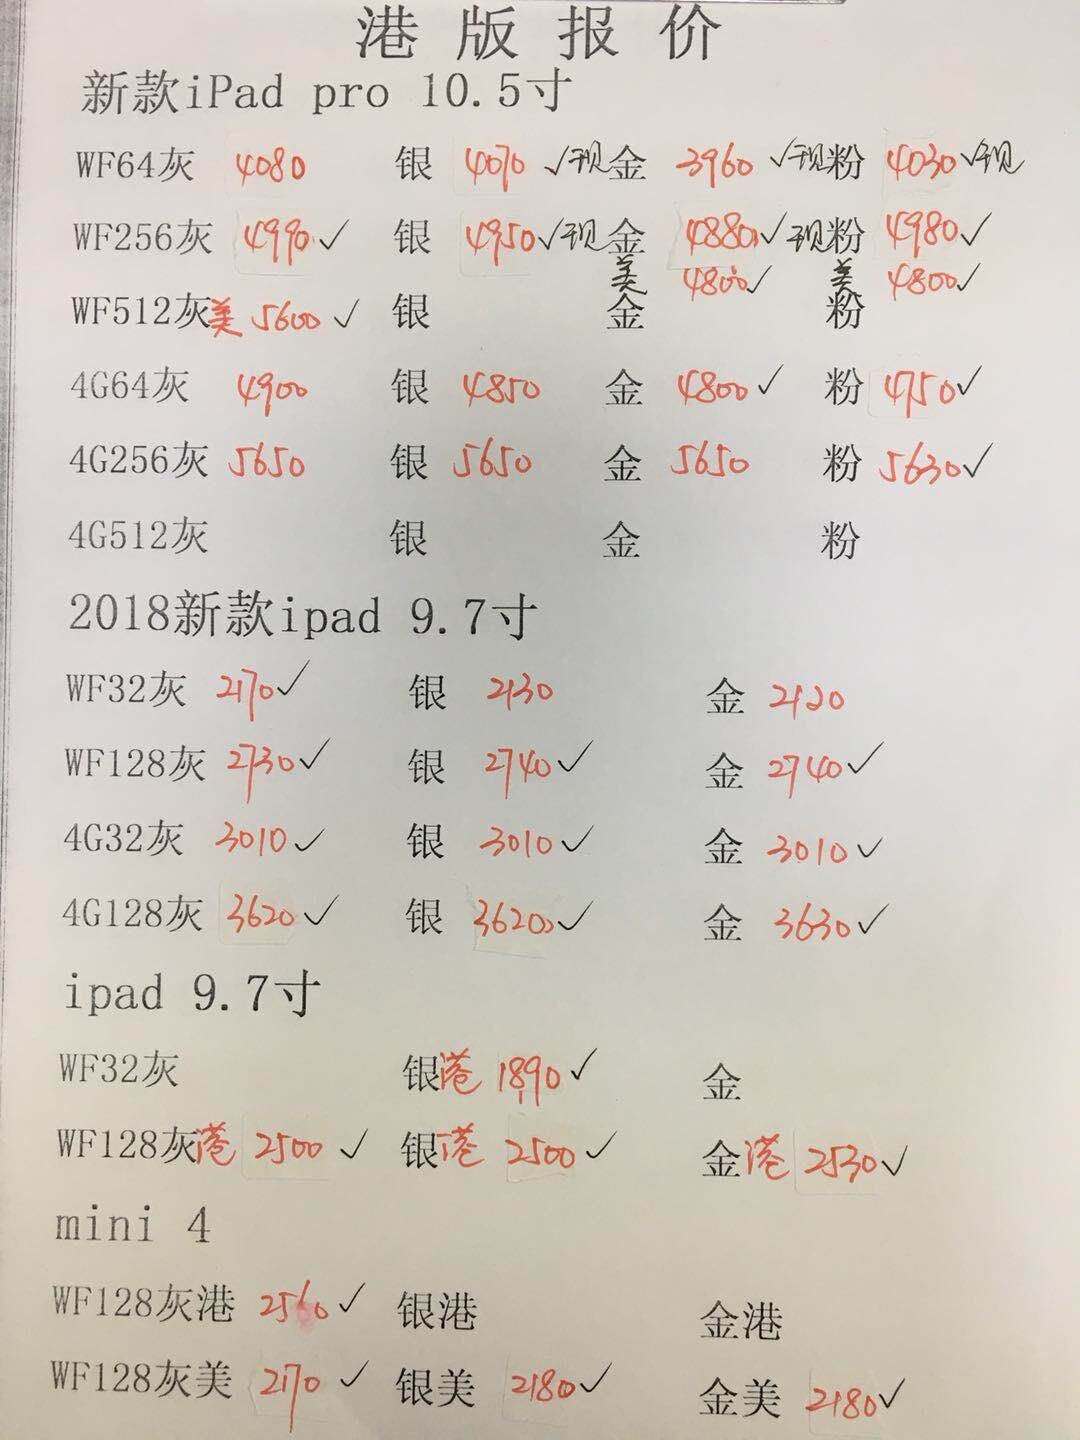 港版报价
新款iPad pro 10.5寸
WF64灰 4080 银 4070 ✓现 金 3960 ✓现 粉 4030 ✓现
WF256灰 4990 ✓ 银 4950 ✓现 金 4880 ✓现 粉 4980 ✓
美 4800 ✓ 美 4800 ✓
WF512灰 美 5600 ✓ 银 金 粉
4G64灰 4900 银 4850 金 4800 ✓ 粉 4750 ✓
4G256灰 5650 银 5650 金 5650 粉 5630 ✓
4G512灰 银 金 粉
2018新款ipad 9.7寸
WF32灰 2170 ✓ 银 2130 金 2120
WF128灰 2730 ✓ 银 2740 ✓ 金 2740 ✓
4G32灰 3010 ✓ 银 3010 ✓ 金 3010 ✓
4G128灰 3620 ✓ 银 3620 ✓ 金 3630 ✓
ipad 9.7寸
WF32灰 银 港 1890 ✓ 金
WF128灰 港 2500 ✓ 银 港 2500 ✓ 金 港 2530 ✓
mini 4
WF128灰港 2560 ✓ 银港 金港
WF128灰美 2170 ✓ 银美 2180 ✓ 金美 2180 ✓